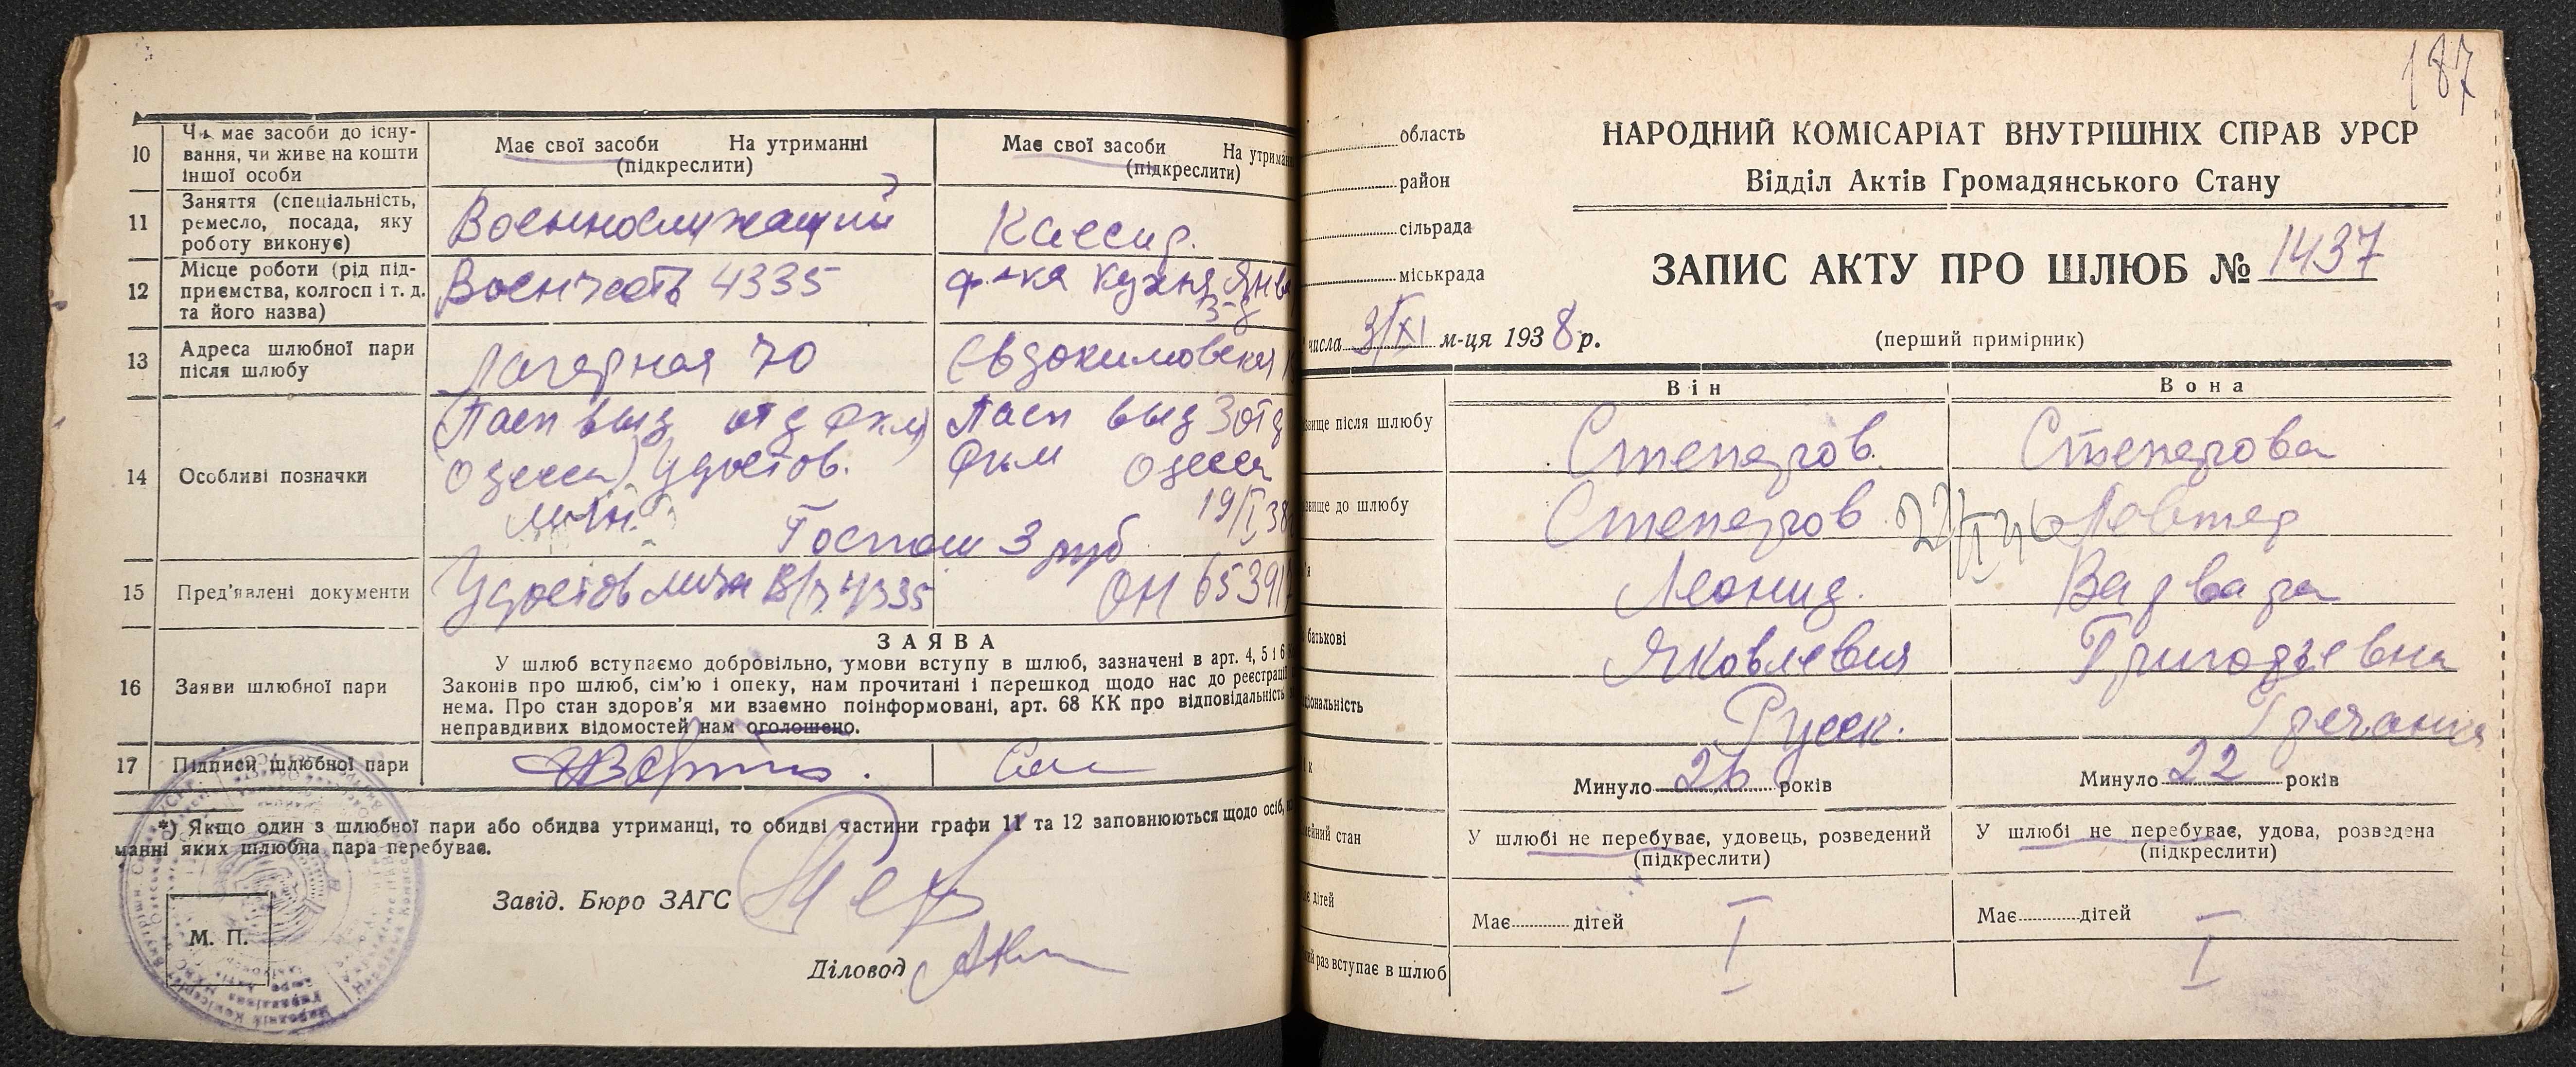 10
Чи має засоби до існу-
вання, чи живе на кошти
іншої особи
Має свої засоби На утриманні
(підкреслити)
Має свої засоби На утриман
(підкреслити)
11
Заняття (спеціальність,
ремесло, посада, яку
роботу виконує)
Военнослужащий
Кассир.
12
Місце роботи (рід під-
приємства, колгосп і т. д.
та його назва)
Воен часть 4335
ф-ка кухня Янва
13
Адреса шлюбної пари
після шлюбу
Лагерная 70
Евдокимовская
14
Особливі позначки
Пасп выд отд Ркм
Одесса) Удостов.
личн.
Пасп выд 3 отд
Ркм Одесса
19/I 38
Госпош 3 руб
15
Пред'явлені документи
Удостов личн В/ч 4335
ОН 653917
16
Заяви шлюбної пари
ЗАЯВА
У шлюб вступаємо добровільно, умови вступу в шлюб, зазначені в арт. 4, 5 і 6
Законів про шлюб, сім'ю і опеку, нам прочитані і перешкод щодо нас до реєстрації
нема. Про стан здоров'я ми взаємно поінформовані, арт. 68 КК про відповідальність
неправдивих відомостей нам оголошено.
17
Підписи шлюбної пари
*) Якщо один з шлюбної пари або обидва утриманці, то обидві частини графи 11 та 12 заповнюються щодо осіб,
манні яких шлюбна пара перебуває.
Завід. Бюро ЗАГС
М. П.
Діловод
187
область
район
сільрада
міськрада
НАРОДНИЙ КОМІСАРІАТ ВНУТРІШНІХ СПРАВ УРСР
Відділ Актів Громадянського Стану
ЗАПИС АКТУ ПРО ШЛЮБ № 1437
числа 3/XI м-ця 1938 р.
(перший примірник)
Він
Вона
вище після шлюбу
Степанов
Степанова
вище до шлюбу
Степанов
Левтер
Леонид.
Варвара
батькові
Яковлевич
Григорьевна
ціональність
Русск.
Гречанка
к
Минуло 26 років
Минуло 22 років
мейний стан
У шлюбі не перебуває, удовець, розведений
(підкреслити)
У шлюбі не перебуває, удова, розведена
(підкреслити)
дітей
Має дітей
Має дітей
раз вступає в шлюб
I
I